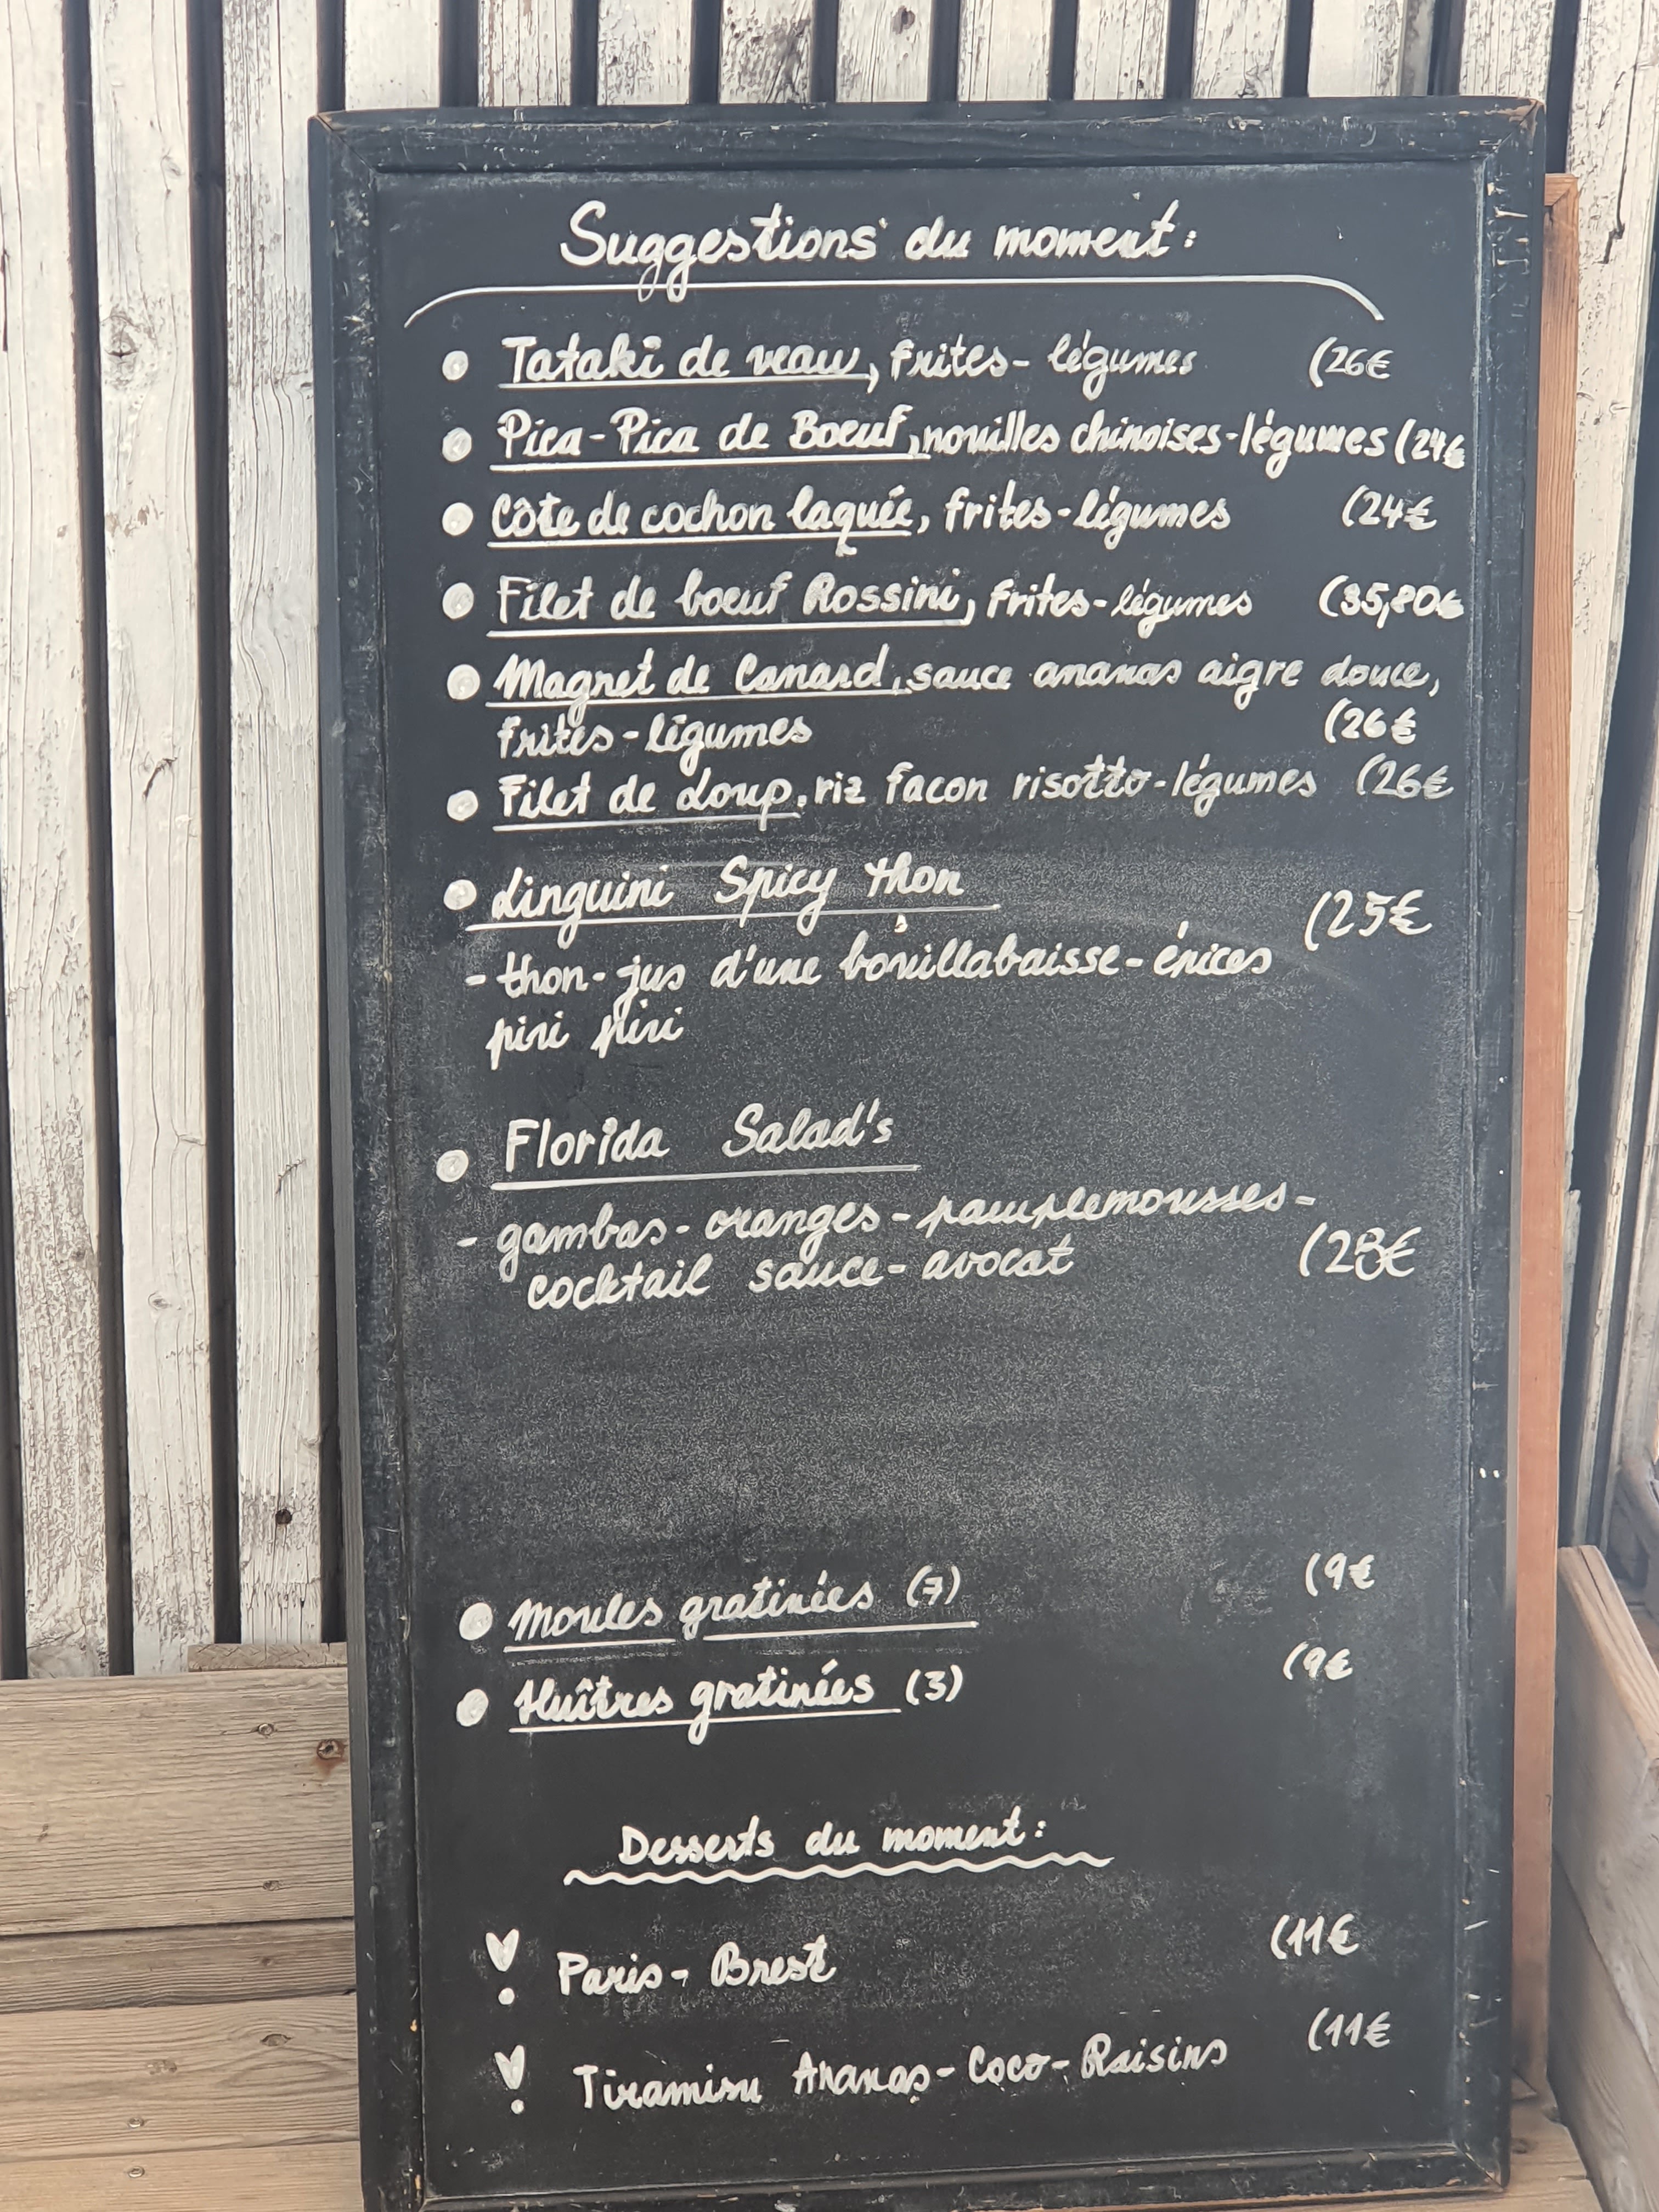 Suggestions du moment :
Tataki de veau, frites - légumes (26€
Pica-Pica de Boeuf, nouilles chinoises - légumes (24€
Côte de cochon laquée, frites - légumes (24€
Filet de boeuf Rossini, frites - légumes (35,80€
Magret de Canard, sauce ananas aigre douce,
frites - légumes (26€
Filet de Loup, riz facon risotto - légumes (26€
Linguini Spicy thon
(25€
- thon - jus d'une bouillabaisse - épices
piri piri
Florida Salad's
- gambas - oranges - pamplemousses -
cocktail sauce - avocat (28€
Moules gratinées (7) (9€
Huîtres gratinées (3) (9€
Desserts du moment :
Paris - Brest (11€
Tiramisu Ananas - Coco - Raisins (11€